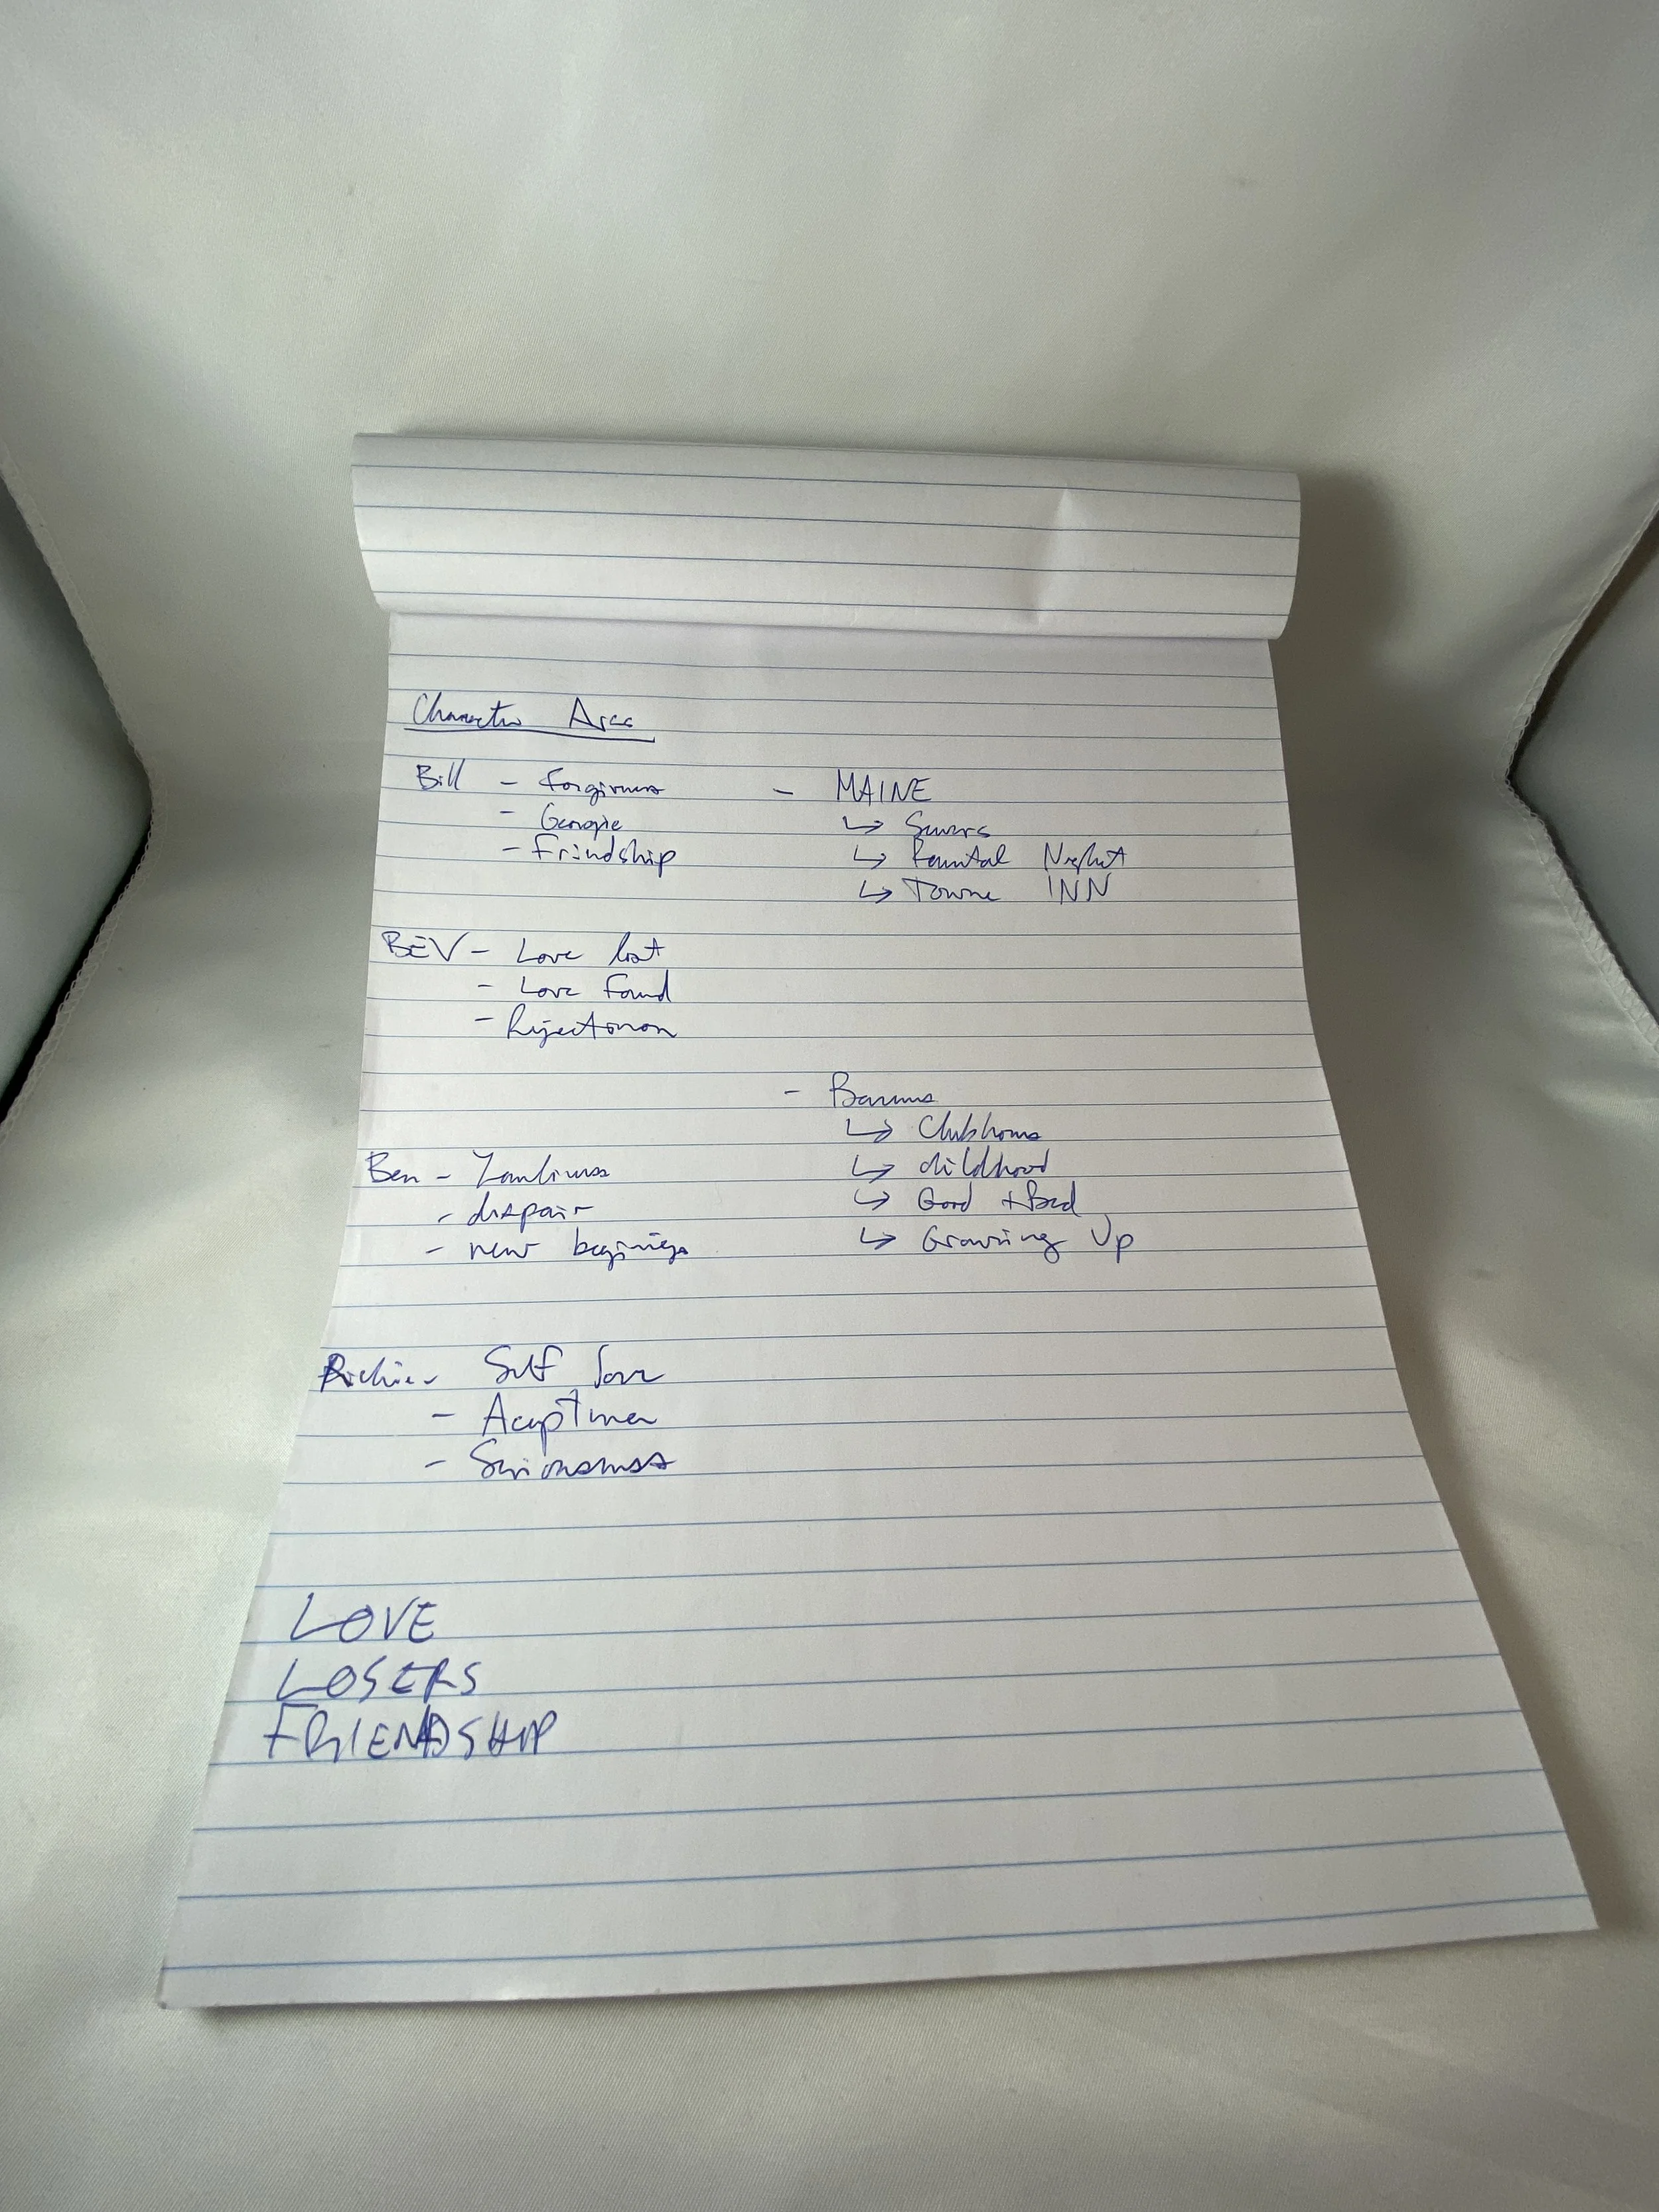 Character Arcs
Bill - Forgiveness
- Georgie
- Friendship
- MAINE
↳ Sewers
↳ Parental Neglect
↳ Towne INN
BEV - Love lost
- Love Found
- Rejection
- Barrens
↳ Clubhouse
↳ childhood
↳ Good + Bad
↳ Growing Up
Ben - Lonliness
- despair
- new beginings
Richie - Self love
- Acceptance
- Seriousness
LOVE
LOSERS
FRIENDSHIP